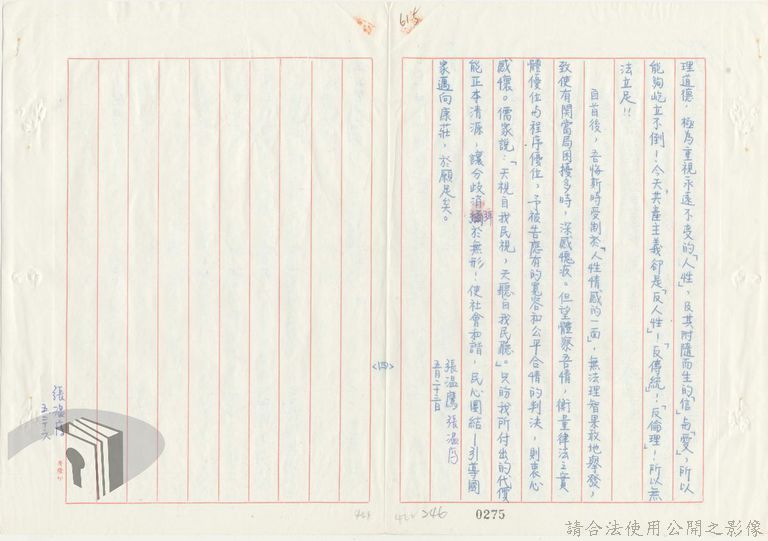 615
理道德,極為重視永遠不變的「人性」,及其附隨而生的「信」與「愛」,所以
能夠屹立不倒!今天,共產主義卻是「反人性」!「反傳統」!「反倫理」!所以無
法立足!!
自首後,吾悔斯時受制於「人性情感的一面」,無法理智果敢地舉發,
致使有關當局困擾多時,深感愧疚。但望體察吾情,衡量律法之實
體優位與程序優位,予被告應有的寬容和公平合情的判決,則衷心
感懷。儒家說:「天視自我民視,天聽自我民聽」。只盼我所付出的代價
能正本清源,讓分歧消彌於無形,使社會和諧,民心團結—引導國
家邁向康莊,於願足矣。
張溫鷹
五月二十三日
〈四〉
0275
請合法使用公開之影像